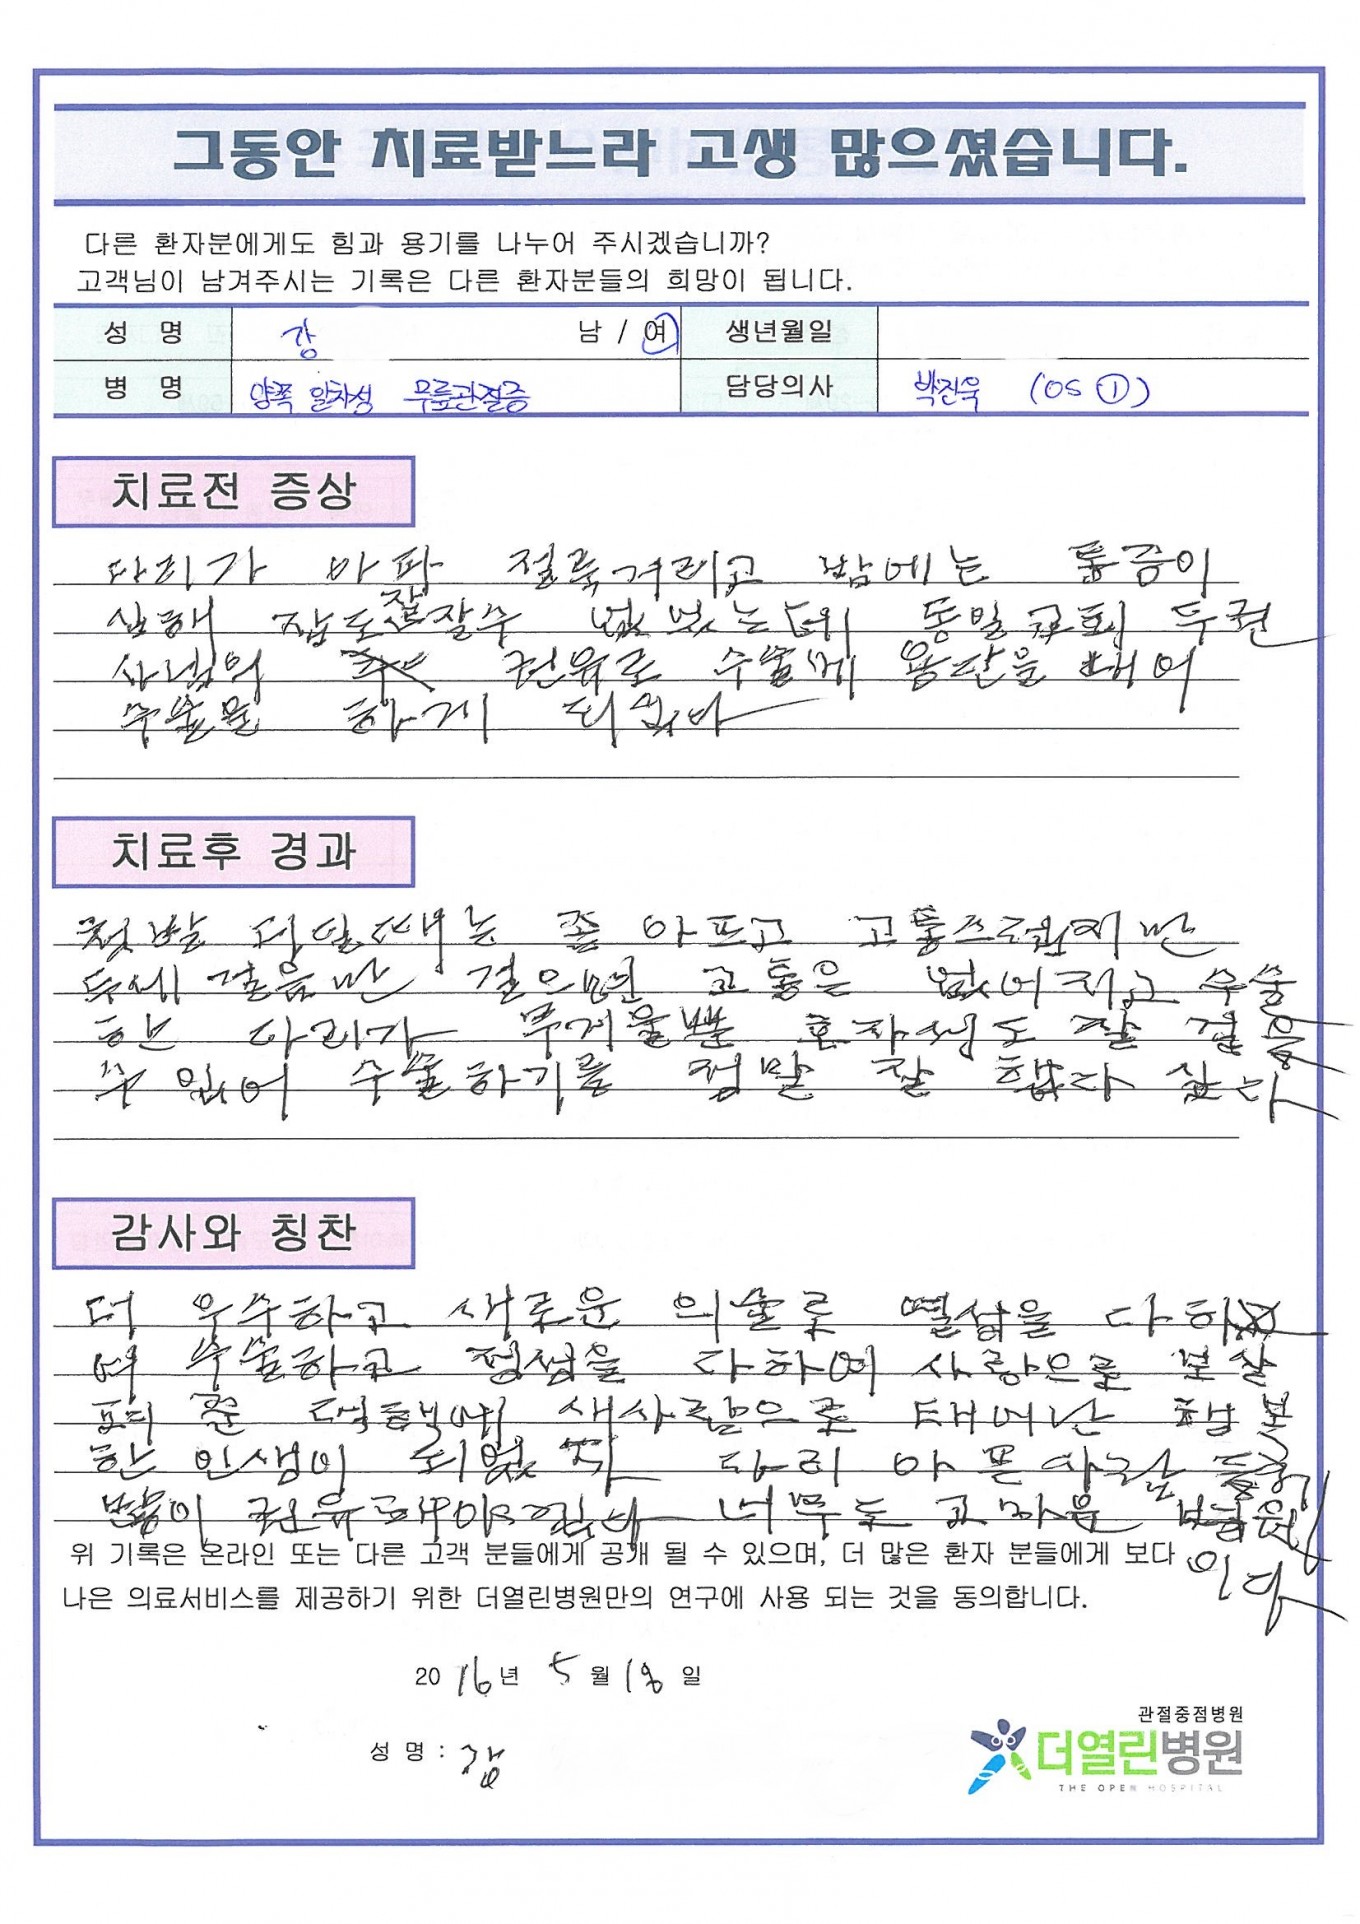 그동안 치료받느라 고생 많으셨습니다.
다른 환자분에게도 힘과 용기를 나누어 주시겠습니까?
고객님이 남겨주시는 기록은 다른 환자분들의 희망이 됩니다.
성 명 강 남 / 여 생년월일
병 명 양쪽 일차성 무릎관절증 담당의사 박진욱 (OS ①)
치료전 증상
다리가 아파 절룩거리고 밤에는 통증이
심해 잠도 잘잘수 없었는데 동일교회 두권
사님의 권유로 수술에 용단을 내어
수술을 하게 되었다
치료후 경과
첫발 디딜때는 좀 아프고 고통스러웠지만
두세걸음만 걸으면 고통은 없어지고 수술
한 다리가 무거울뿐 혼자서도 잘 걸을
수 있어 수술하기를 정말 잘 했다 싶다
감사와 칭찬
더 우수하고 새로운 의술로 열심을 다하
여 수술하고 정성을 다하여 사랑으로 보살
펴 준 덕택에 새사람으로 태어난 행복
한 인생이 되었 다리 아픈 사람들
많이 권유 너무도 고마운 병원
이다
위 기록은 온라인 또는 다른 고객 분들에게 공개 될 수 있으며, 더 많은 환자 분들에게 보다
나은 의료서비스를 제공하기 위한 더열린병원만의 연구에 사용 되는 것을 동의합니다.
2016년 5월 18일
성 명 : 강
관절중점병원
더열린병원
THE OPEN HOSPITAL